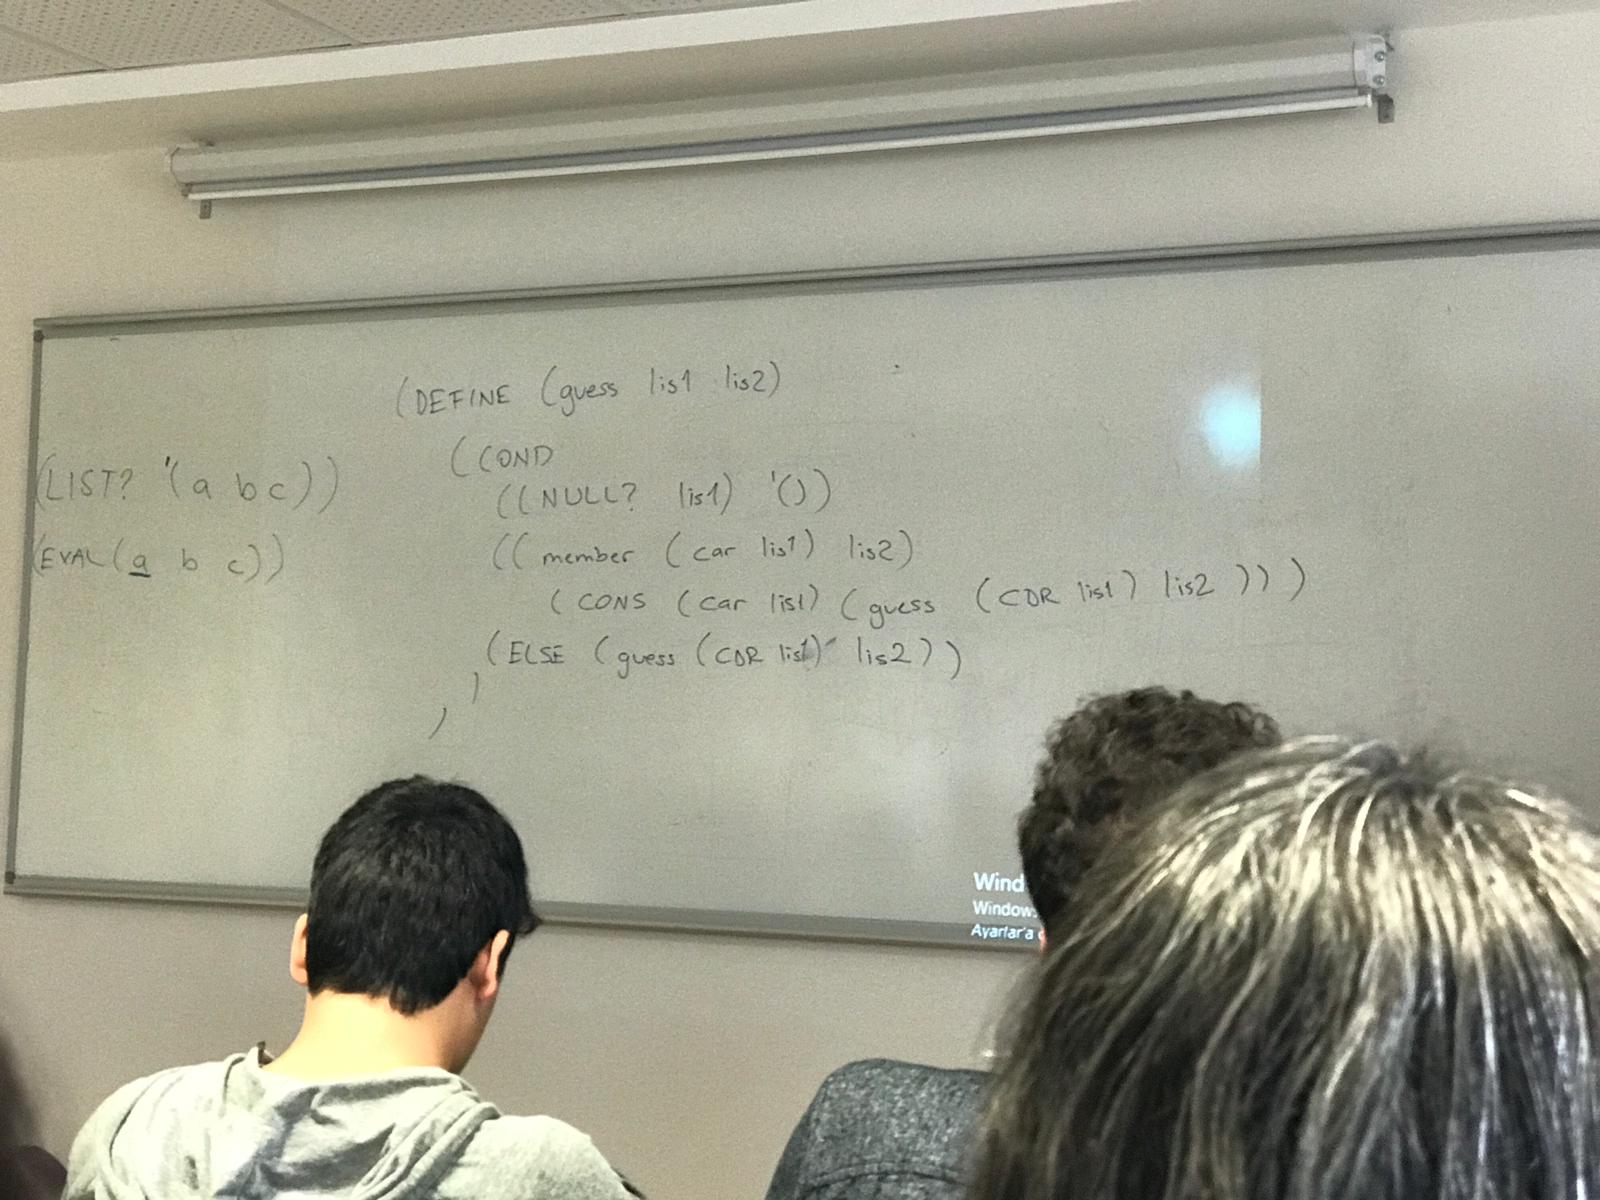 (LIST? '(a b c))
(EVAL (a b c))
(DEFINE (guess lis1 lis2)
(COND
((NULL? lis1) '())
((member (car lis1) lis2)
(CONS (car lis1) (guess (CDR lis1) lis2)))
(ELSE (guess (CDR lis1) lis2))
)
)
Wind
Windows
Ayarlar'a